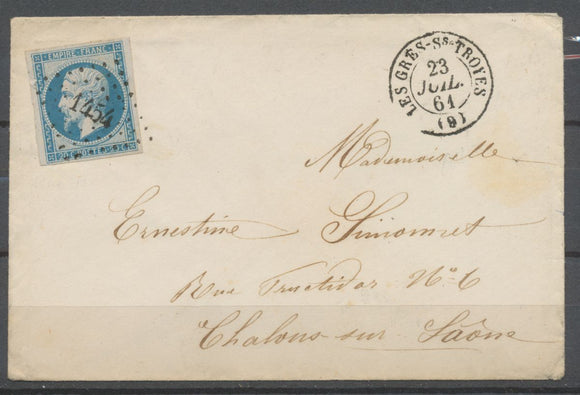 EMPIRE FRANC.
1454
20c POSTES 20c
LES GRÈS-SS-TROYES
23
JUIL.
61
(9)
Mademoiselle
Ernestine Simonnet
Rue Fructidor N° 6
Chalons-sur-Saône